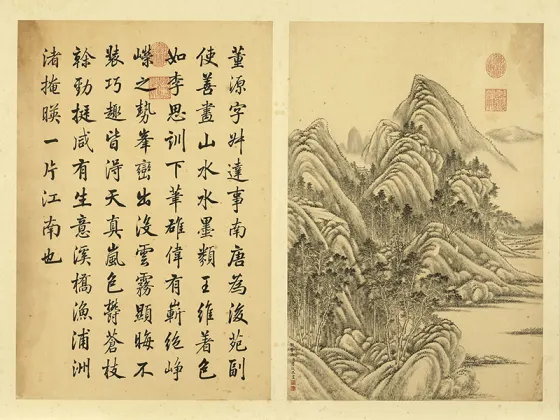 董源字叔達事南唐為後苑副
使善畫山水水墨類王維著色
如李思訓下筆雄偉有嶄絕崢
嶸之勢峯巒出沒雲霧顯晦不
裝巧趣皆得天真嵐色欝蒼枝
榦勁挺咸有生意溪橋漁浦洲
渚掩暎一片江南也